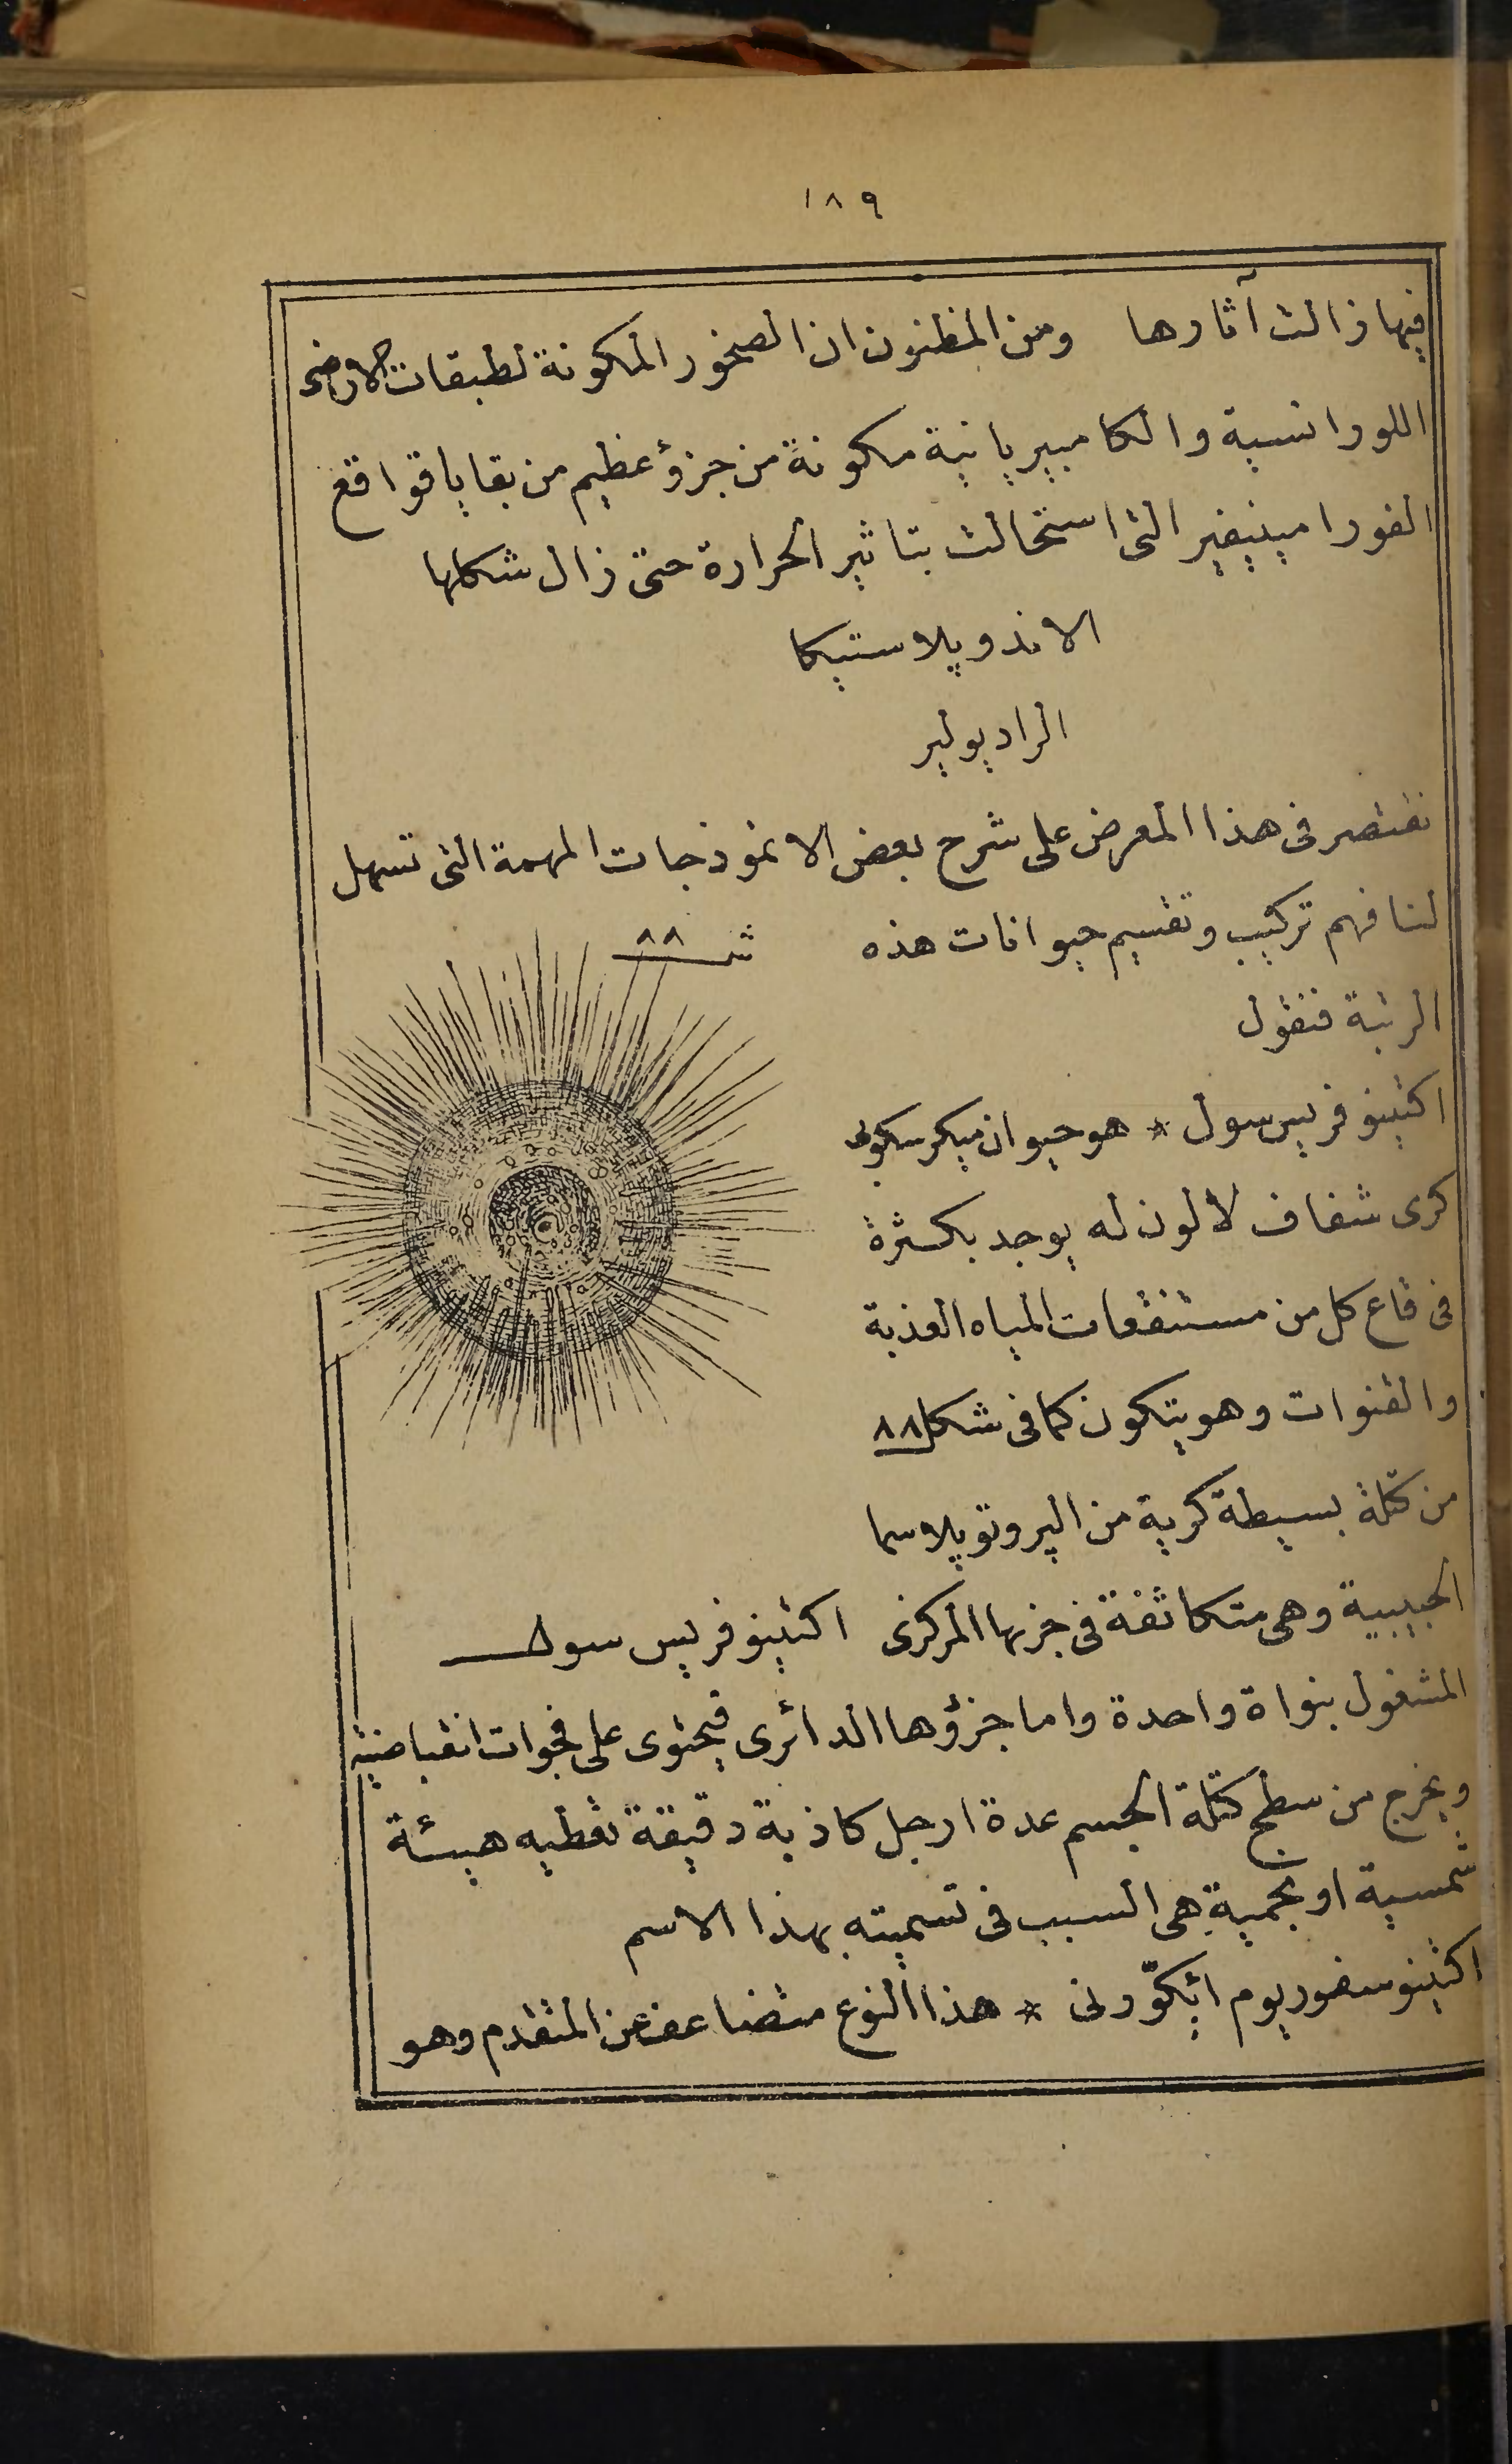 ١٨٩
فيها زالت آثارها ومن المظنون ان الصخور المكونة لطبقات الارض
اللورانسية والكامبيريانية مكونة من جزؤ عظيم من بقايا قواقع
الفورامينيفير التى استحالت بتاثير الحرارة حتى زال شكلها
الاندوپلاستيكا
الراديولير
نقتصر فى هذا المعرض على شرح بعض الانموذجات المهمة التى تسهل
لنا فهم تركيب وتقسيم حيوانات هذه
شـ ٨٨
الرتبة فنقول
اكتينوفريس سول * هو حيوان ميكرسكوبى
كرى شفاف لا لون له يوجد بكثرة
فى قاع كل من مستنقعات المياه العذبة
والقنوات وهو يتكون كما فى شكل ٨٨
من كتلة بسيطة كرية من الپروتوپلاسما
الحبيبية وهى متكاثفة فى جزئها المركزى
اكتينوفريس سول
المشغول بنواة واحدة واما جزؤها الدائرى فيحتوى على فجوات انقباضية
ويخرج من سطح كتلة الجسم عدة ارجل كاذبة دقيقة تعطيه هيئة
شمسية او نجمية هى السبب فى تسميته بهذا الاسم
اكتينوسفوريوم ايكّورنى * هذا النوع متضاعف عن المتقدم وهو